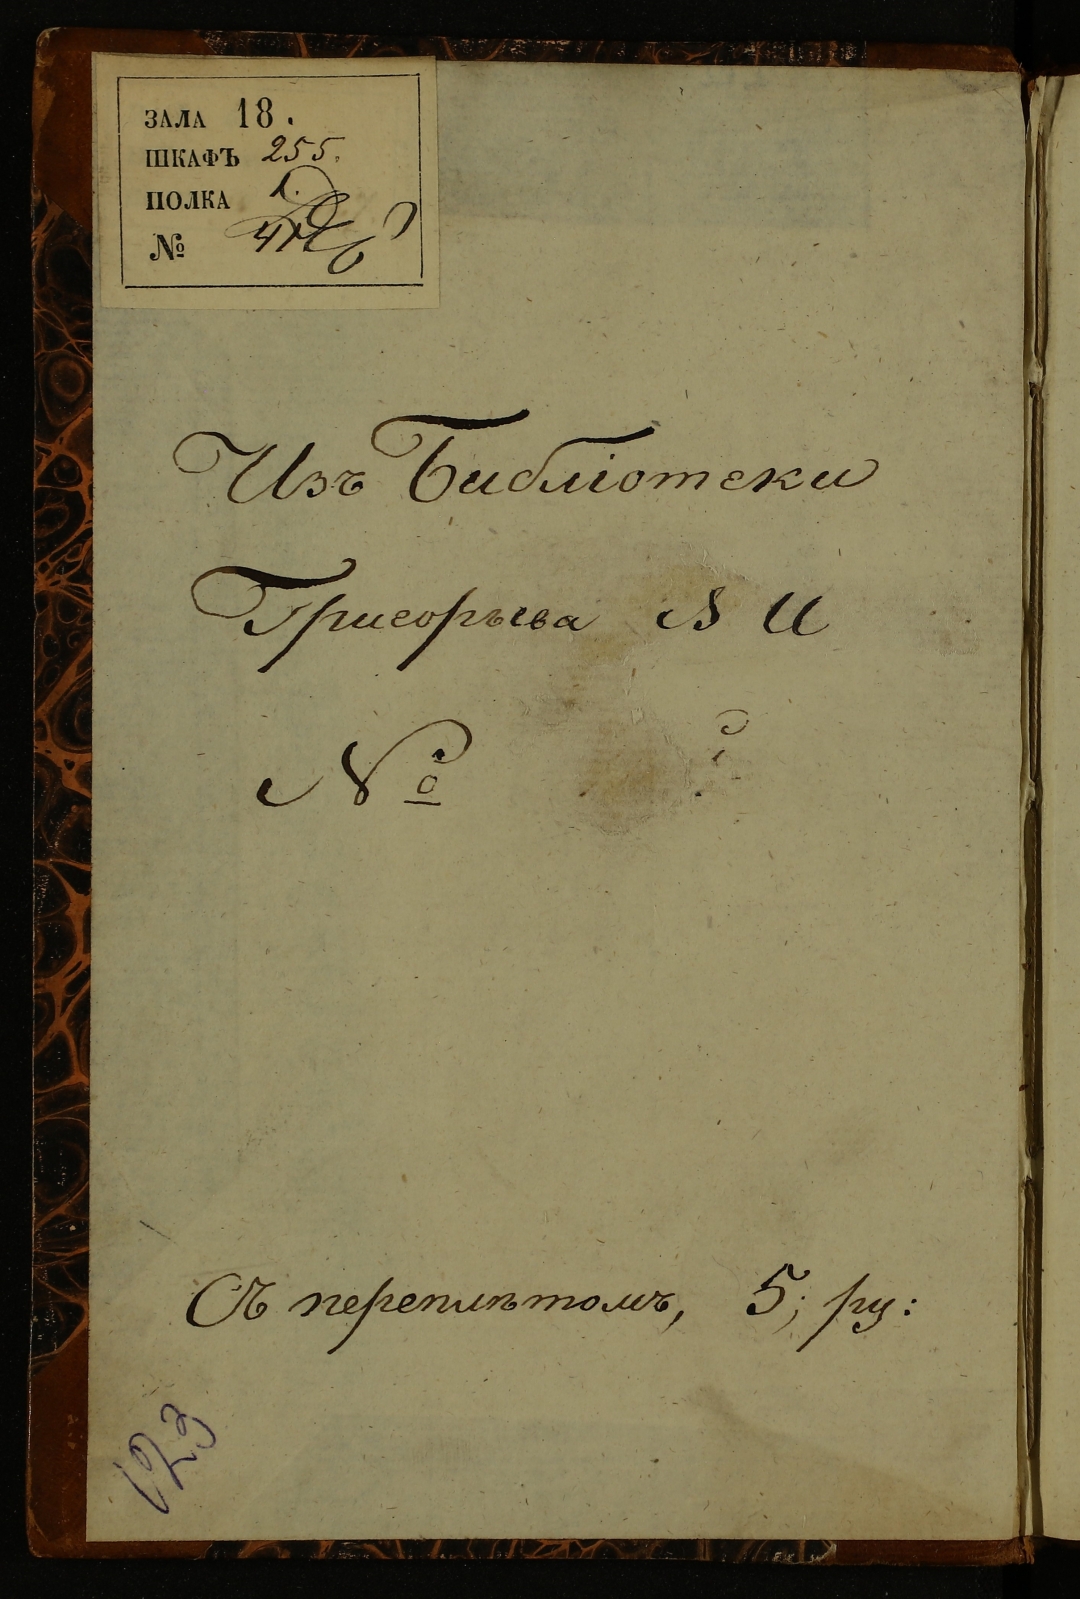 ЗАЛА 18.
ШКАФЪ 255.
ПОЛКА 1.
№
Изъ Библіотеки
Григорьева А И
№
Съ переплѣтомъ, 5; ру:
123